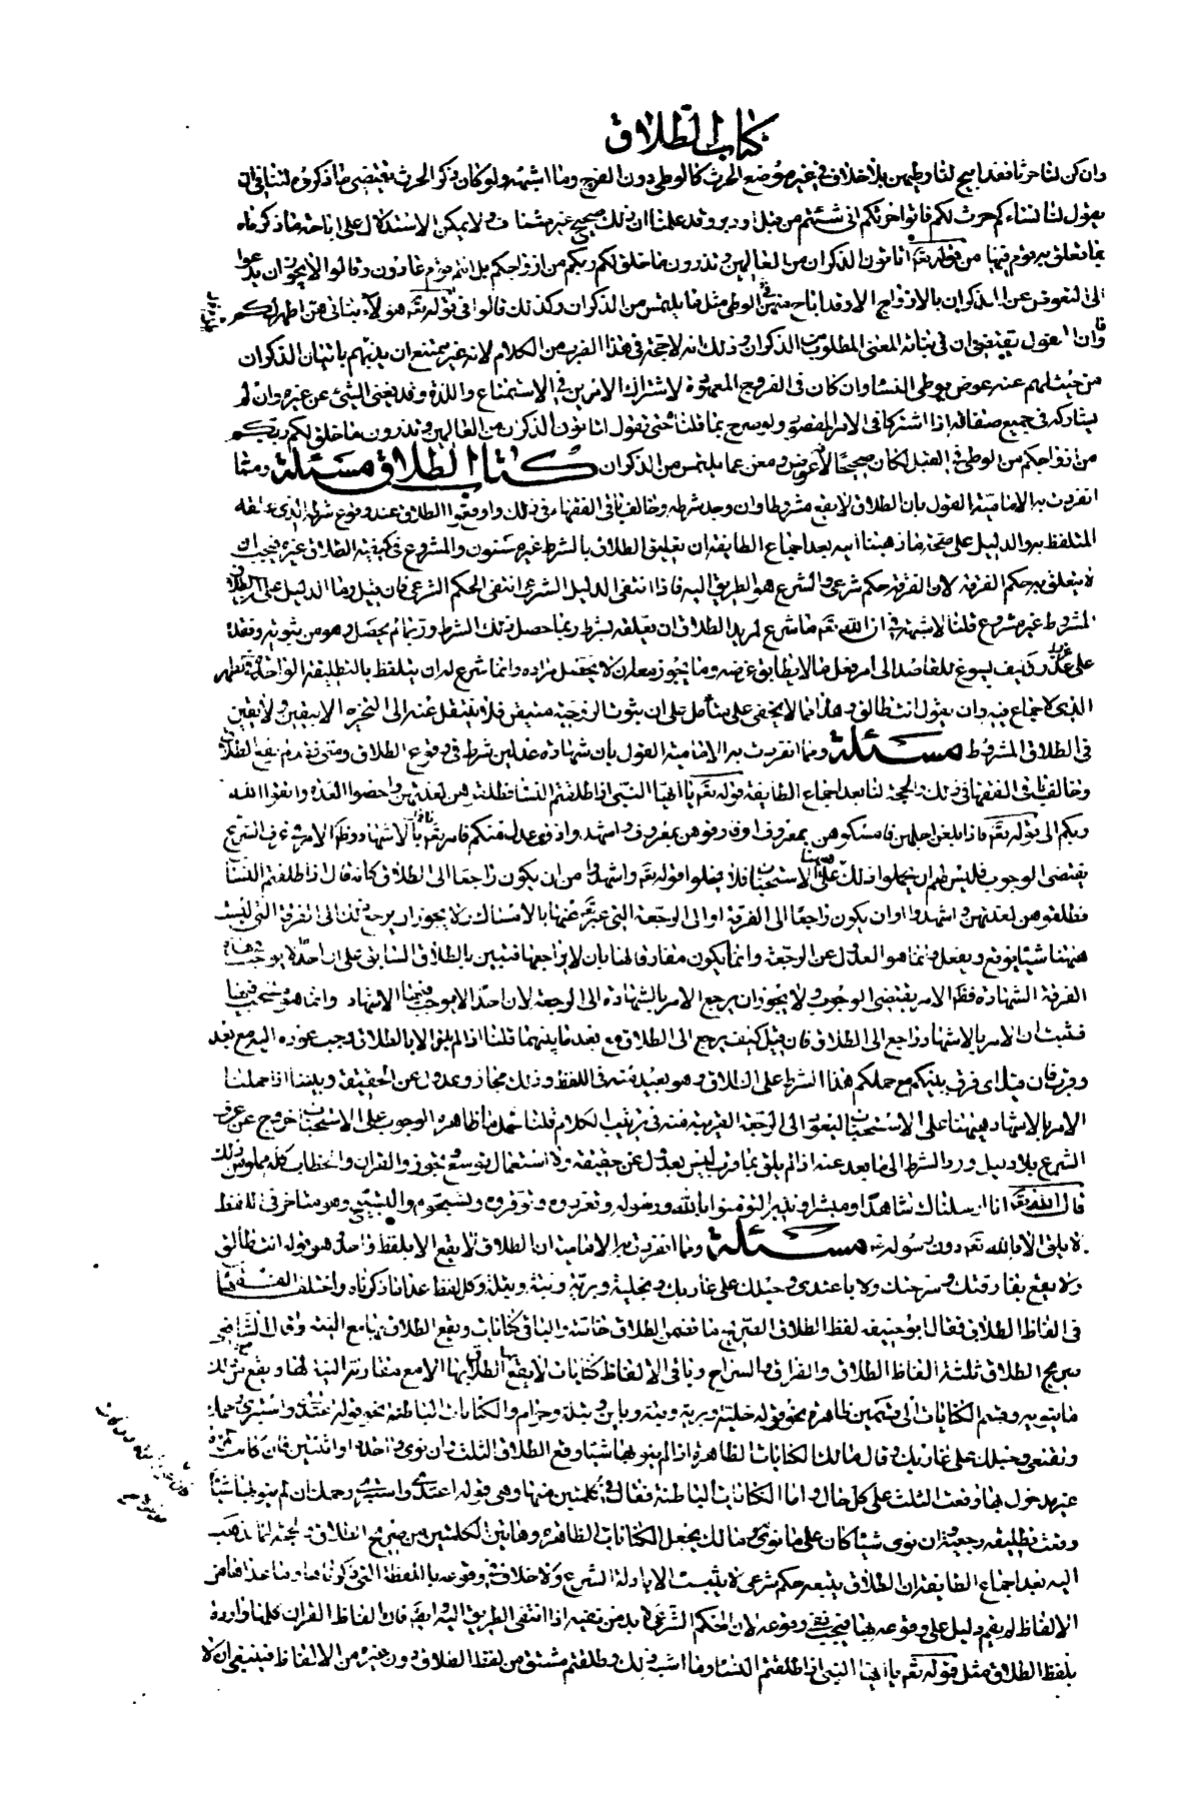 كتاب الطلاق
وان كن لنا حرثا فقد ابيح لنا وطيهن بلا خلاف في غير موضع الحرث كالوطي دون الفرج وما اشبهه ولو كان ذكر الحرث يقتضي ما ذكروه لتنافى ان
يقول لنا نساءكم حرث لكم فاتوا حرثكم انى شئتم من قبل او دبر وقد علمنا ان ذلك صحيح غير متناف ولا يمكن الاستدلال على اباحة ما ذكرناه
بما تعلق به قوم فيها من قوله تع اتاتون الذكران من العالمين وتذرون ما خلق لكم ربكم من ازواجكم بل انتم قوم عادون وقالوا لا يجوز ان يدعوا
الى التعوض عن الذكران بالازواج الا وقد اباح منهن في الوطي مثل ما يلتمس من الذكران وكذلك قالوا في قوله تع هؤلاء بناتي هن اطهر لكم
وان القول يقتضي ان في بناته المعنى المطلوب من الذكران وذلك انه لا حجة في هذا الضرب من الكلام لانه غير ممتنع ان يذمهم باتيان الذكران
من حيث لهم عنه عوض بوطي النساء وان كان في الفروج المعهودة لاشتراك الامرين في الاستمتاع واللذة وقد يغني الشئ عن غيره وان لم
يشاركه في جميع صفاته اذا اشتركا في الامر المقصود ولو صرح بما قلنا حتى نقول اتاتون الذكران من العالمين وتذرون ما خلق لكم ربكم
من ازواجكم من الوطي في القبل لكان صحيحا لانه عوض ومغن عما يلتمس من الذكران كتاب الطلاق مسئلة ومما
انفردت به الامامية القول بان الطلاق لا يقع مشروطا وان وجد شرطه وخالف باقي الفقهاء في ذلك واوقعوا الطلاق عند وقوع شرطه الذي علقه
المتلفظ به والدليل على صحة ما ذهبنا اليه بعد اجماع الطايفة ان تعليق الطلاق بالشرط غير مسنون والمشروع في كيفية الطلاق غيره فيجب ان
لا يتعلق به حكم الفرقة لان الفرقة حكم شرعي والشرع هو الطريق اليه فاذا انتفى الدليل الشرعي انتفى الحكم الشرعي فان قيل وما الدليل على ان الطلاق
المشروط غير مشروع قلنا لا شبهة في ان الله تع ما شرع لمريد الطلاق ان يعلقه بشرط ربما حصل ذلك الشرط وربما لم يحصل وهو من ثبوته وفقده
على غرر وكيف يسوغ للقاصد الى امر فعل ما لا يطابق غرضه وما يجوز معه ان لا يحصل مراده وانما شرع له ان يتلفظ بالتطليقة الواحدة في طهر
الذي لا جماع فيه وان يقول انت طالق وهذا مما لا يخفى على متامل على ان ثبوت الزوجية متيقن فلا ننتقل عنه الى التحريم الا بيقين ولا يقين
في الطلاق المشروط مسئلة ومما انفردت به الامامية القول بان شهادة عدلين شرط في وقوع الطلاق ومتى فقد لم يقع الطلاق
وخالف باقي الفقهاء في ذلك والحجة لنا بعد اجماع الطايفة قوله تع يا ايها النبي اذا طلقتم النساء فطلقوهن لعدتهن واحصوا العدة واتقوا الله
ربكم الى قوله تع فاذا بلغن اجلهن فامسكوهن بمعروف او فارقوهن بمعروف واشهدوا ذوي عدل منكم فامر تع بالاشهاد وظاهر الامر في عرف الشرع
يقتضي الوجوب فليس لهم ان يحملوا ذلك على الاستحباب فلا يخلوا قوله تع واشهدوا من ان يكون راجعا الى الطلاق كانه قال اذا طلقتم النساء
فطلقوهن لعدتهن واشهدوا او ان يكون راجعا الى الفرقة او الى الرجعة التي عبر تع عنها بالامساك ولا يجوز ان يرجع ذلك الى الفرقة التي ليست
ههنا شيئا يوقع ويفعل وانما هو العدول عن الرجعة وانما يكون مفارقا لها بان لا يراجعها فتبين بالطلاق السابق على ان احدا لا يوجب في هذه
الفرقة الشهادة وظاهر الامر يقتضي الوجوب ولا يجوز ان يرجع الامر بالشهادة الى الرجعة لان احدا لا يوجب فيها الاشهاد وانما هو مستحب فيها
فثبت ان الامر بالاشهاد راجع الى الطلاق فان قيل كيف يرجع الى الطلاق مع بعد ما بينهما قلنا اذا لم يلق الا بالطلاق وجب عوده اليه مع بعد
وقرب فان قيل اي فرق بينكم مع حملكم هذا الشرط على الطلاق وهو بعيد منه في اللفظ وذلك مجاز وعدول عن الحقيقة وبيننا اذا حملنا
الامر بالاشهاد ههنا على الاستحباب ليعود الى الرجعة القريبة منه في ترتيب الكلام قلنا حمل ما ظاهره الوجوب على الاستحباب خروج عن عرف
الشرع بلا دليل ورد الشرط الى ما بعد عنه اذا لم يلق بما قرب ليس بعدول عن حقيقة ولا استعمال توسع وتجوز والقران والخطاب كله مملو من ذلك
قال الله تع انا ارسلناك شاهدا ومبشرا ونذيرا لتؤمنوا بالله ورسوله وتعزروه وتوقروه وتسبحوه والتسبيح وهو متاخر في اللفظ
لا يليق الا بالله تع دون رسوله مسئلة ومما انفردت به الامامية ان الطلاق لا يقع الا بلفظ واحد وهو قوله انت طالق
ولا يقع بفارقتك وسرحتك ولا باعتدي وحبلك على غاربك وبخلية وبرية وبتة وبتلة وكل لفظ عدا ما ذكرناه واختلف الفقهاء
في الفاظ الطلاق فقال ابو حنيفة لفظ الطلاق الصريح ما تضمن الطلاق خاصة والباقي كنايات ويقع الطلاق بها مع النية وقال الشافعي
صريح الطلاق ثلثة الفاظ الطلاق والفراق والسراح وباقي الالفاظ كنايات لا يقع الطلاق بها الا مع مقارنة النية لها ويقع من ذلك
ما ينويه وقسم الكنايات الى قسمين ظاهرة نحو قوله خلية وبرية وبتة وباين وبتلة وحرام والكنايات الباطنة نحو قوله اعتدي واستبري رحمك
وتقنعي وحبلك على غاربك وقال مالك الكنايات الظاهرة اذا لم ينو بها شيئا وقع الطلاق الثلث وان نوى واحدة او اثنتين فان كانت المرأة
غير مدخول بها وقعت الثلث على كل حال واما الكنايات الباطنة فقال في كلمتين منها وهي قوله اعتدي واستبري رحمك ان لم ينو بها شيئا
وقعت تطليقة رجعية وان نوى شيئا كان على ما نوى ومالك يجعل الكنايات الظاهرة وهاتين الكلمتين من صريح الطلاق والحجة لما نذهب
اليه بعد اجماع الطايفة ان الطلاق يتبعه حكم شرعي لا يثبت الا بادلة الشرع ولا خلاف في وقوعه باللفظة التي ذكرناها وما عداها من
الالفاظ لم يقم دليل على وقوعه بها فيجب نفي وقوعه لان الحكم الشرعي لا بد من نفيه اذا انتفى الطريق اليه وايضا فان الفاظ القران كلها واردة
بلفظ الطلاق مثل قوله تع يا ايها النبي اذا طلقتم النساء وما اشبه ذلك وطلقتم مشتق من لفظ الطلاق دون غيره من الالفاظ فينبغي ان لا